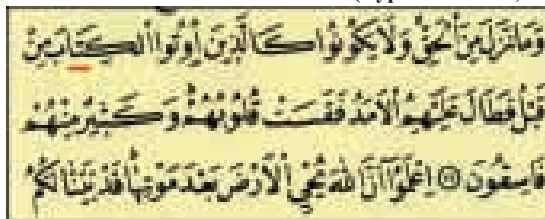 وَمَا نَزَلَ مِنَ ٱلْحَقِّ وَلَا يَكُونُوا۟ كَٱلَّذِينَ أُوتُوا۟ ٱلْكِتَٰبَ مِن
قَبْلُ فَطَالَ عَلَيْهِمُ ٱلْأَمَدُ فَقَسَتْ قُلُوبُهُمْ وَكَثِيرٌ مِّنْهُمْ
فَٰسِقُونَ ۝ ٱعْلَمُوٓا۟ أَنَّ ٱللَّهَ يُحْىِ ٱلْأَرْضَ بَعْدَ مَوْتِهَا قَدْ بَيَّنَّا لَكُمُ